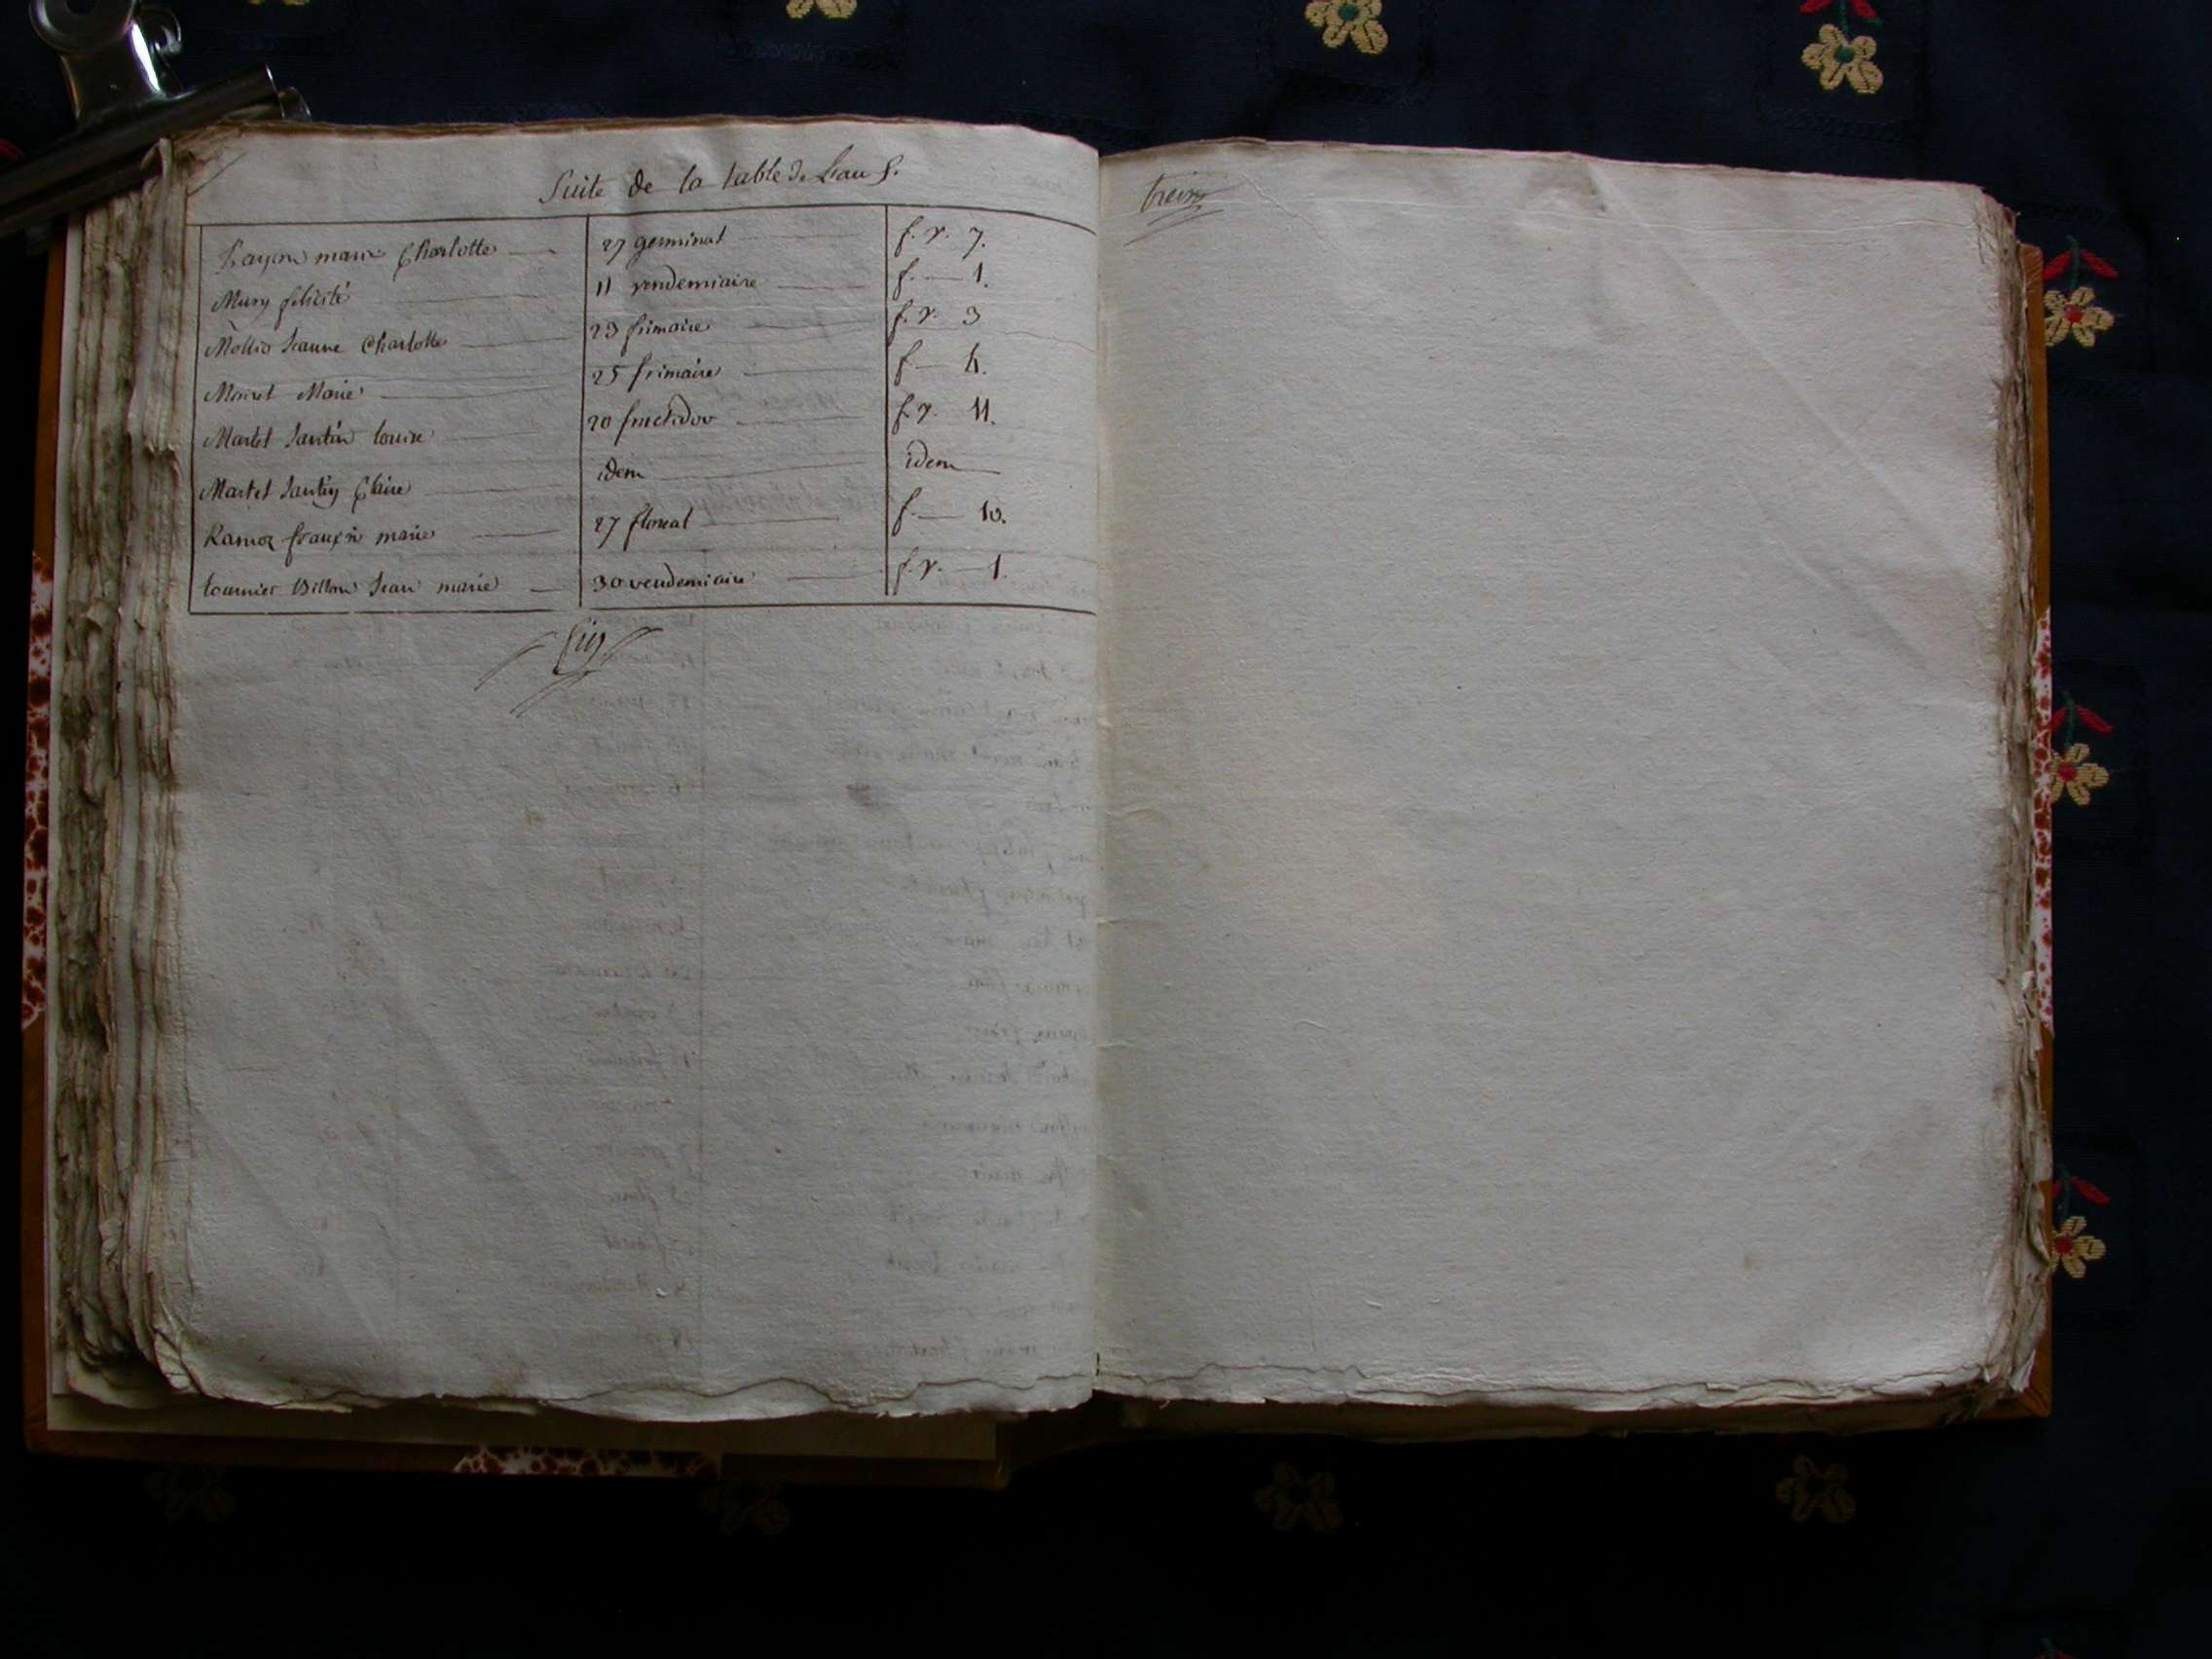 Suite de la table de l'an 5.
Layon marie Charlotte 27 germinal f. v. 7.
Mury felicité 11 vendemiaire f. 1.
Mollio Jeanne Charlotte 23 frimaire f. v. 3
Moiret Marie 25 frimaire f. 4.
Martel Santin louise 20 fructidor f. v. 11.
Martel Santin Claire idem idem
Ramoz françoise marie 27 floreal f. 10.
tournier Billon Jean marie 30 vendemiaire f. v. 1.
fin
treize